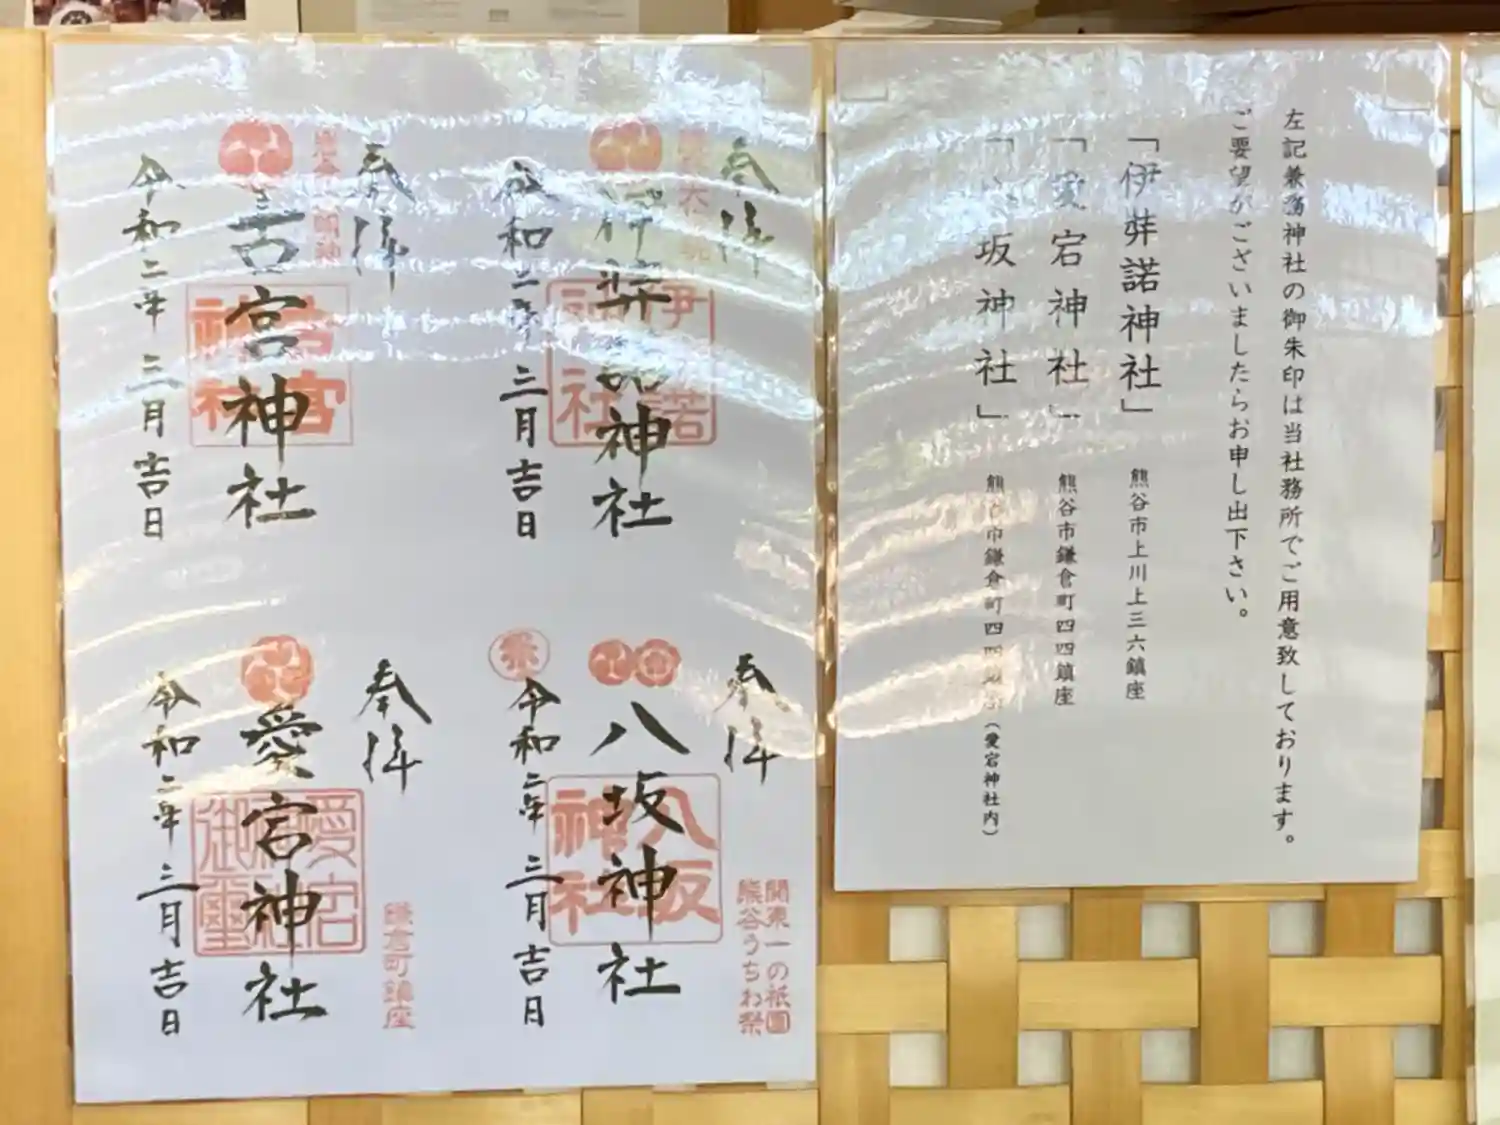 左記兼務神社の御朱印は当社務所でご用意致しております。
ご要望がございましたらお申し出下さい。
「伊弉諾神社」 熊谷市上川上三六鎮座
「愛宕神社」 熊谷市鎌倉町四四鎮座
坂神社」 熊谷市鎌倉町四四
(愛宕神社内)
奉拝
伊弉諾神社
令和二年 三月吉日
奉拝
古宮神社
令和二年 三月吉日
奉拝
関東一の祇園
熊谷うちわ祭
八坂神社
令和二年 三月吉日
奉拝
鎌倉町鎮座
愛宕神社
令和二年 三月吉日